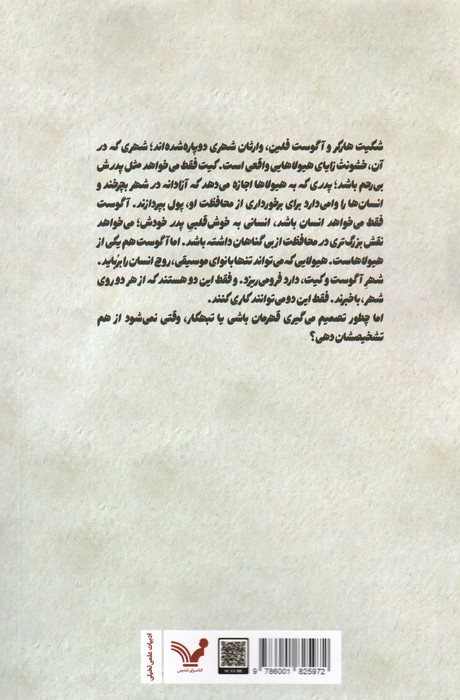 شگیت هارکر و آگوست فلین، وارثان شهری دوپاره‌شده‌اند؛ شهری که در
آن، خشونتْ زایای هیولاهایی واقعی است. کیت فقط می‌خواهد مثل پدرش
بی‌رحم باشد؛ پدری که به هیولاها اجازه می‌دهد که آزادانه در شهر بچرخند و
انسان‌ها را وامی‌دارد برای برخورداری از محافظت او، پول بپردازند. آگوست
فقط می‌خواهد انسان باشد، انسانی به خوش‌قلبی پدر خودش؛ می‌خواهد
نقش بزرگ‌تری در محافظت از بی‌گناهان داشته باشد. اما آگوست هم یکی از
هیولاهاست. هیولایی که می‌تواند تنها با نوای موسیقی، روح انسان را برباید.
شهرِ آگوست و کیت، دارد فرومی‌ریزد. و فقط این دو هستند که از هر دو روی
شهر، باخبرند. فقط این دو می‌توانند کاری کنند.
اما چطور تصمیم می‌گیری قهرمان باشی یا تبهکار، وقتی نمی‌شود از هم
تشخیصشان دهی؟
ادبیات علمی‌تخیلی
کتابسرای تندیس
9 786001 825972